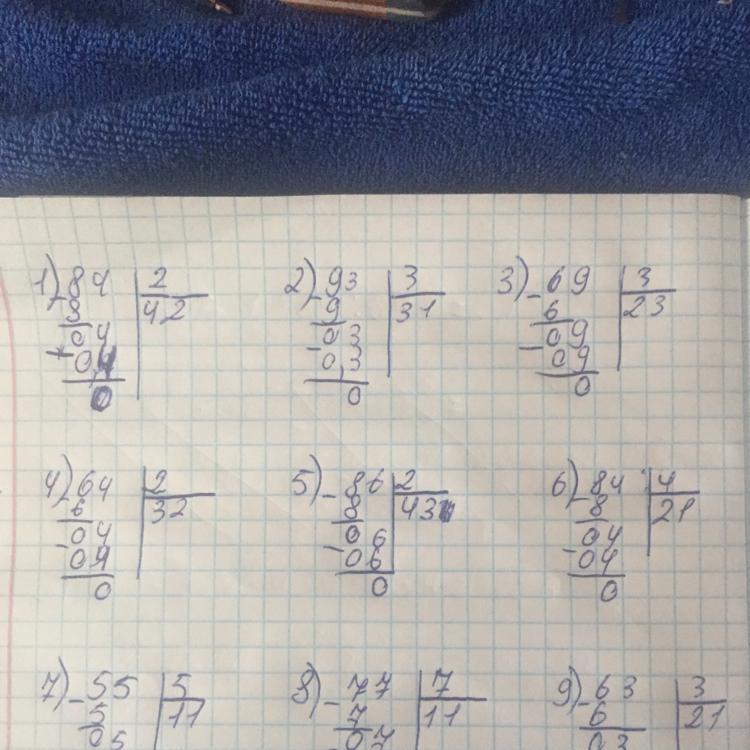 1) -84 | 2
8 | 42
04
+04
0
2) -93 | 3
9 | 31
03
-03
0
3) -69 | 3
6 | 23
09
-09
0
4) -64 | 2
6 | 32
04
-04
0
5) -86 | 2
8 | 43
06
-06
0
6) -84 | 4
8 | 21
04
-04
0
7) -55 | 5
5 | 11
05
8) -77 | 7
7 | 11
07
9) -63 | 3
6 | 21
03